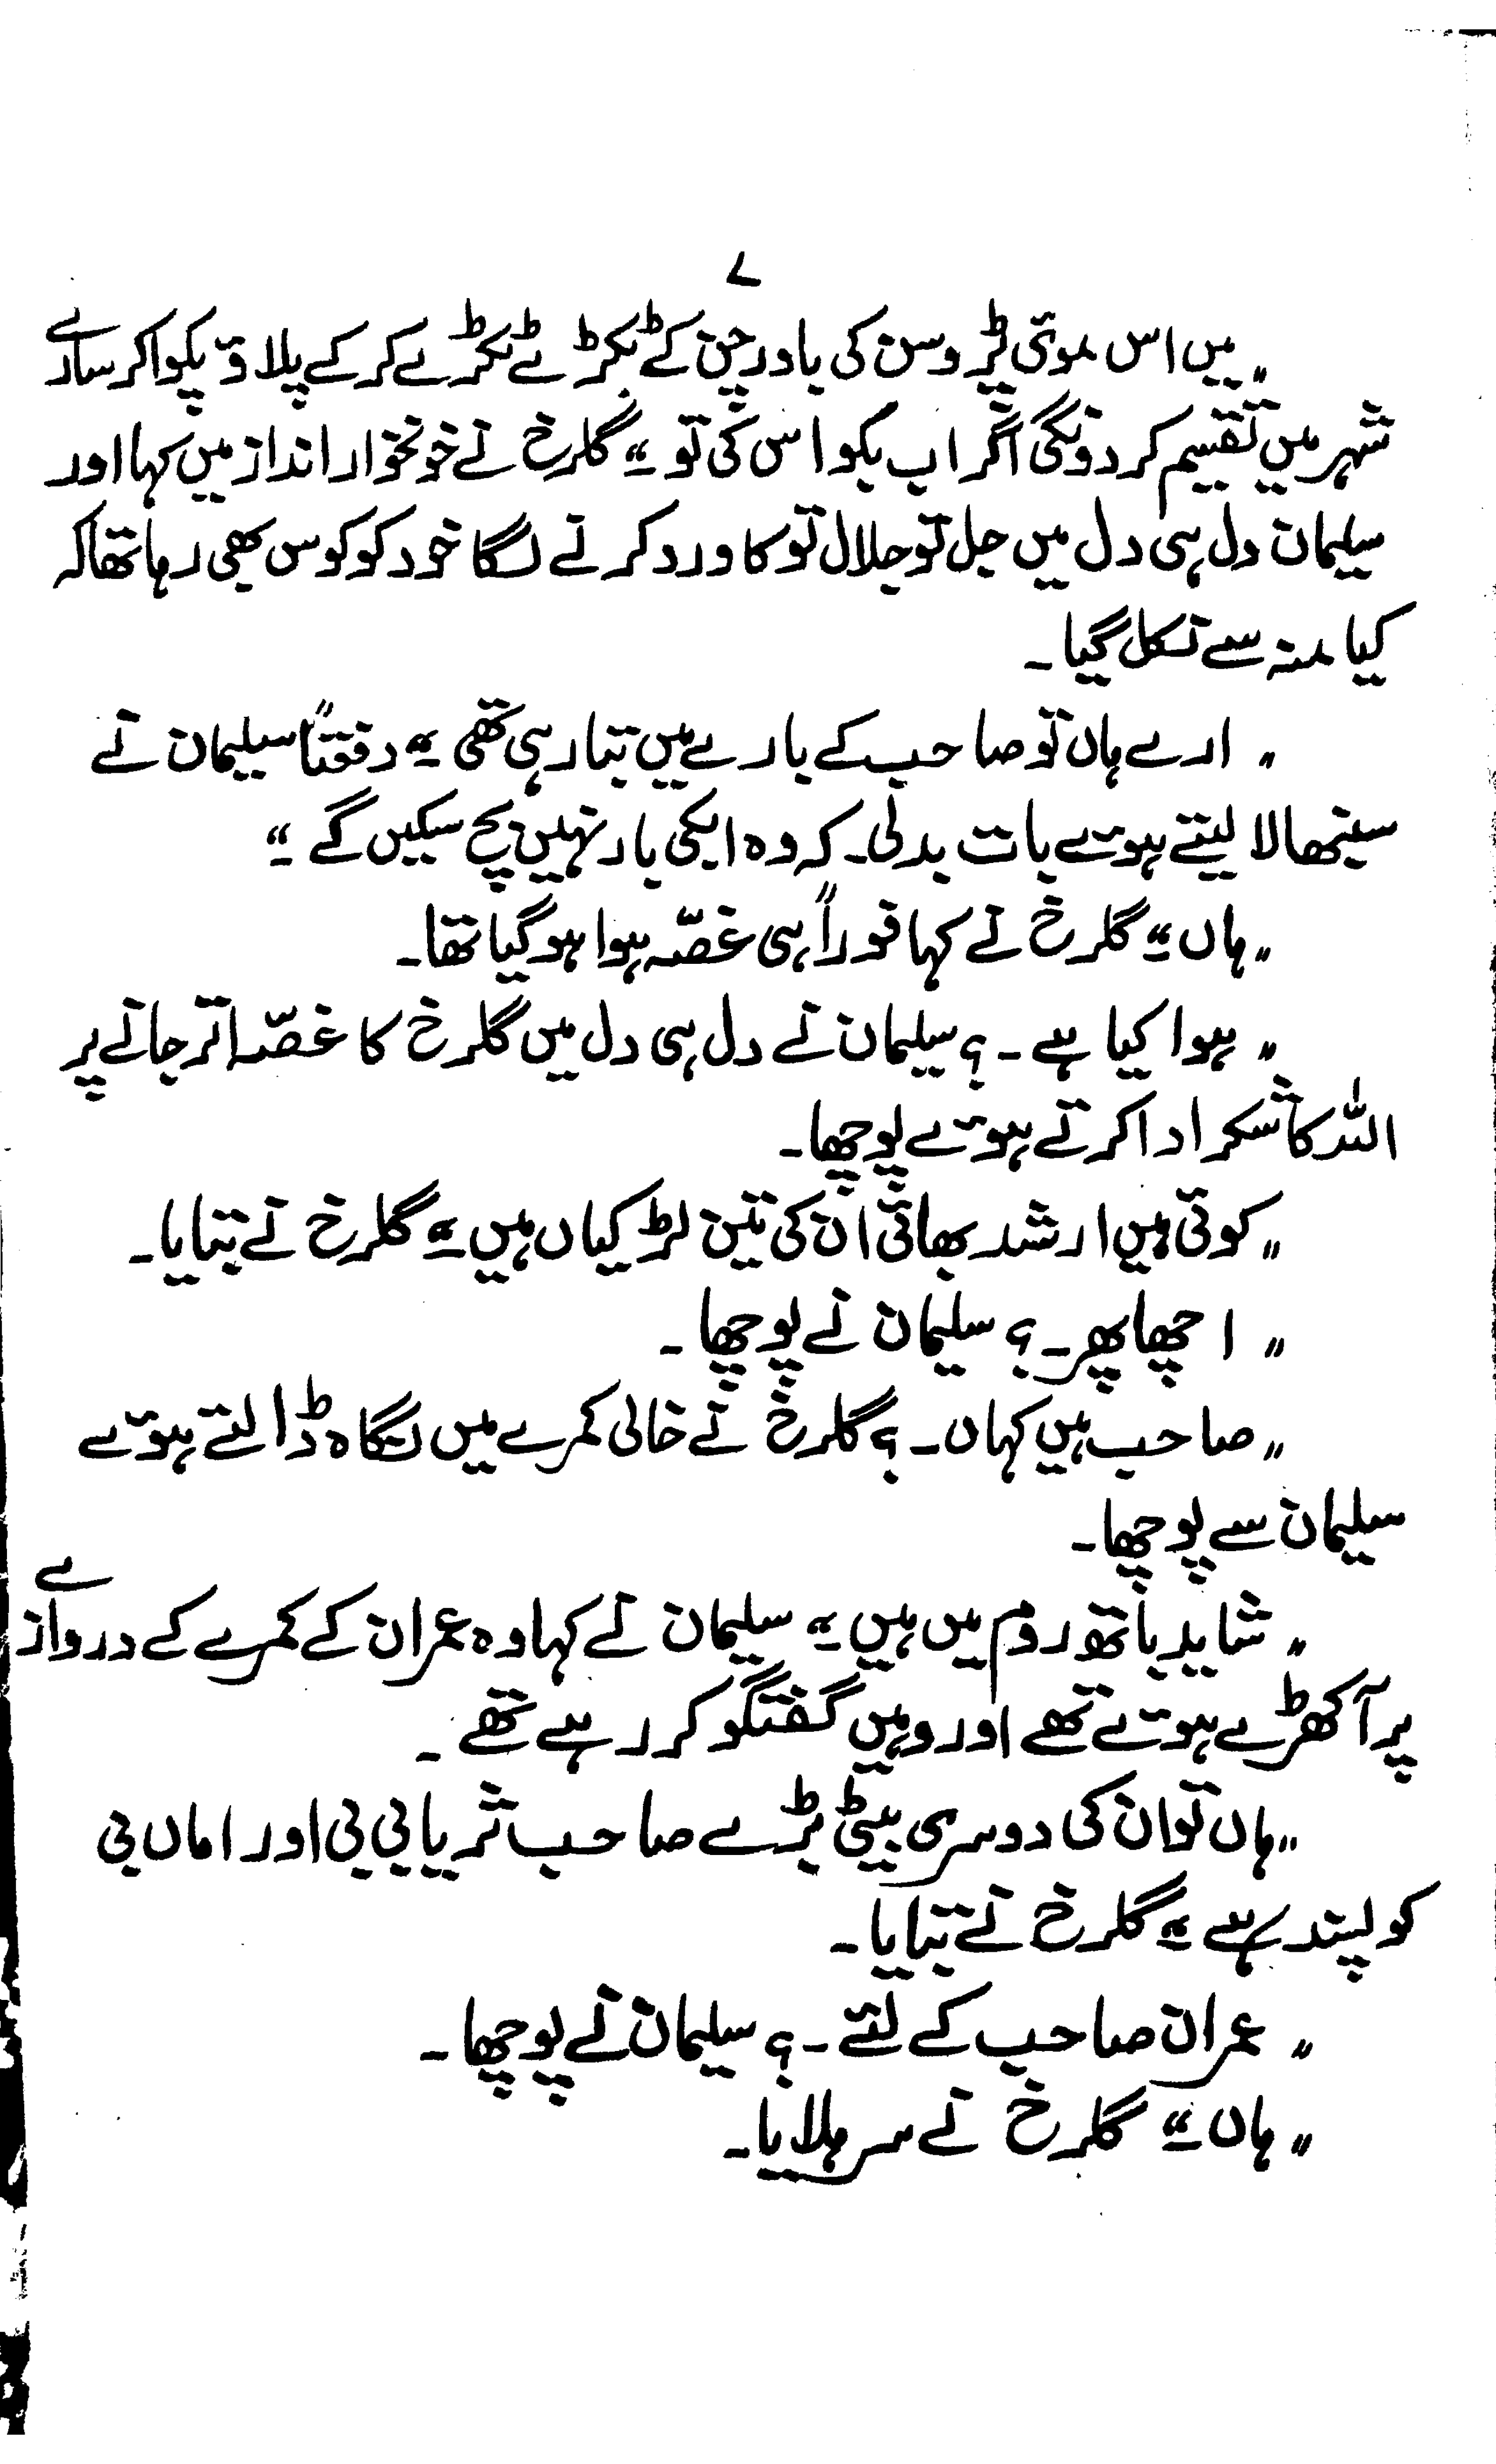 ۷
"میں اس موئی پڑوسن کی باورچن کے ٹکڑے ٹکڑے کر کے پلاؤ پکوا کر سارے
شہر میں تقسیم کر دونگی اگر اب بکواس کی تو" گلرخ نے خونخوار انداز میں کہا اور
سلیمان دل ہی دل میں جل تو جلال تو کا ورد کرنے لگا خود کو کوس بھی رہا تھا کہ
کیا منہ سے نکل گیا۔
"ارے ہاں تو صاحب کے بارے میں بتا رہی تھی" دفعتاً سلیمان نے
سنبھالا لیتے ہوئے بات بدلی۔ کہ وہ ابکی بار نہیں بچ سکیں گے"
"ہاں" گلرخ نے کہا فوراً ہی غصّہ ہوا ہو گیا تھا۔
"ہوا کیا ہے۔؟ سلیمان نے دل ہی دل میں گلرخ کا غصّہ اتر جانے پر
اللہ کا شکر ادا کرتے ہوئے پوچھا۔
"کوئی ہیں ارشد بھائی ان کی تین لڑکیاں ہیں" گلرخ نے بتایا۔
"اچھا پھر۔؟ سلیمان نے پوچھا۔
"صاحب ہیں کہاں۔؟ گلرخ نے خالی کمرے میں نگاہ ڈالتے ہوئے
سلیمان سے پوچھا۔
"شاید باتھ روم میں ہیں" سلیمان نے کہا وہ عمران کے کمرے کے دروازے
پر آ کھڑے ہوئے تھے اور وہیں گفتگو کر رہے تھے۔
"ہاں تو ان کی دوسری بیٹی بڑے صاحب ثریا بی بی اور اماں بی
کو پسند ہے" گلرخ نے بتایا۔
"عمران صاحب کے لئے۔؟ سلیمان نے پوچھا۔
"ہاں" گلرخ نے سر ہلایا۔